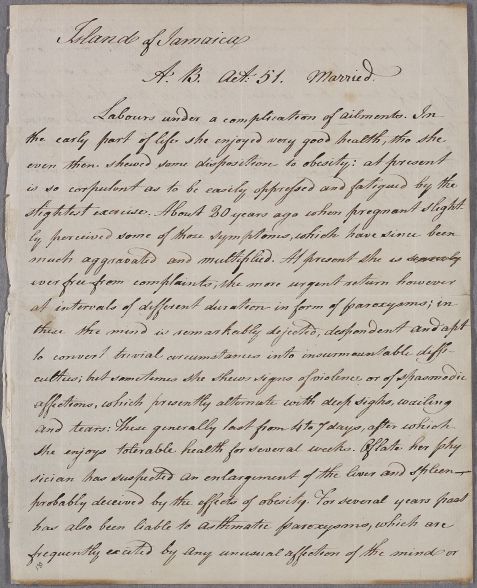 Island of Jamaica
A. B. Aet: 51. Married.
Labours under a complication of ailments. In
the early part of life she enjoyed very good health, tho she
even then shewed some disposition to obesity: at present
is so corpulent as to be easily oppressed and fatigued by the
slightest exercise. About 30 years ago when pregnant slight-
ly perceived some of those symptoms, which have since been
much aggravated and multiplied. At present she is scarcely
ever free from complaints; the more urgent return however
at intervals of different duration in form of paroxysms; in
these the mind is remarkably dejected, despondent and apt
to convert trivial circumstances into insurmountable diffi-
culties; but sometimes she shews signs of violence, or of spasmodic
affections, which presently alternate with deep sighs, wailing
and tears: These generally last from 4 to 7 days, after which
she enjoys tolerable health for several weeks. Of late her phy
sician has suspected an enlargement of the liver and spleen—
probably deceived by the effects of obesity. For several years past
has also been liable to asthmatic paroxysms, which are
frequently excited by any unusual affection of the mind or